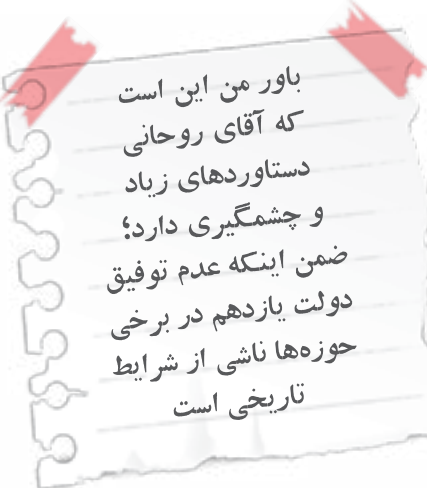 باور من این است
که آقای روحانی
دستاوردهای زیاد
و چشمگیری دارد؛
ضمن اینکه عدم توفیق
دولت یازدهم در برخی
حوزه‌ها ناشی از شرایط
تاریخی است